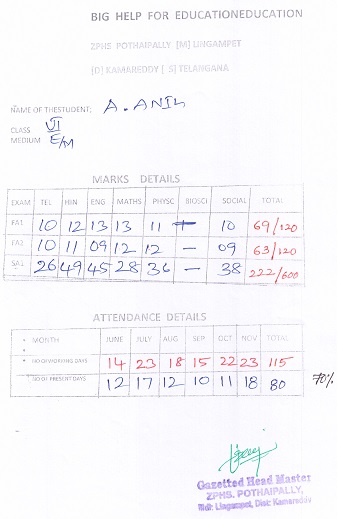 BIG HELP FOR EDUCATIONEDUCATION
ZPHS POTHAIPALLY [M] LINGAMPET
[D] KAMAREDDY [ S] TELANGANA
NAME OF THESTUDENT: A. ANIL
CLASS VI
MEDIUM E/M
MARKS DETAILS
EXAM TEL HIN ENG MATHS PHYSC BIOSCI SOCIAL TOTAL
FA1 10 12 13 13 11 — 10 69/120
FA2 10 11 09 12 12 — 09 63/120
SA1 26 49 45 28 36 — 38 222/600
ATTENDANCE DETAILS
MONTH JUNE JULY AUG SEP OCT NOV TOTAL
NO OF WORKING DAYS 14 23 18 15 22 23 115
NO OF PRESENT DAYS 12 17 12 10 11 18 80 70%
Gazetted Head Master
ZPHS. POTHAIPALLY,
Mdl: Lingampet, Dist: Kamareddy